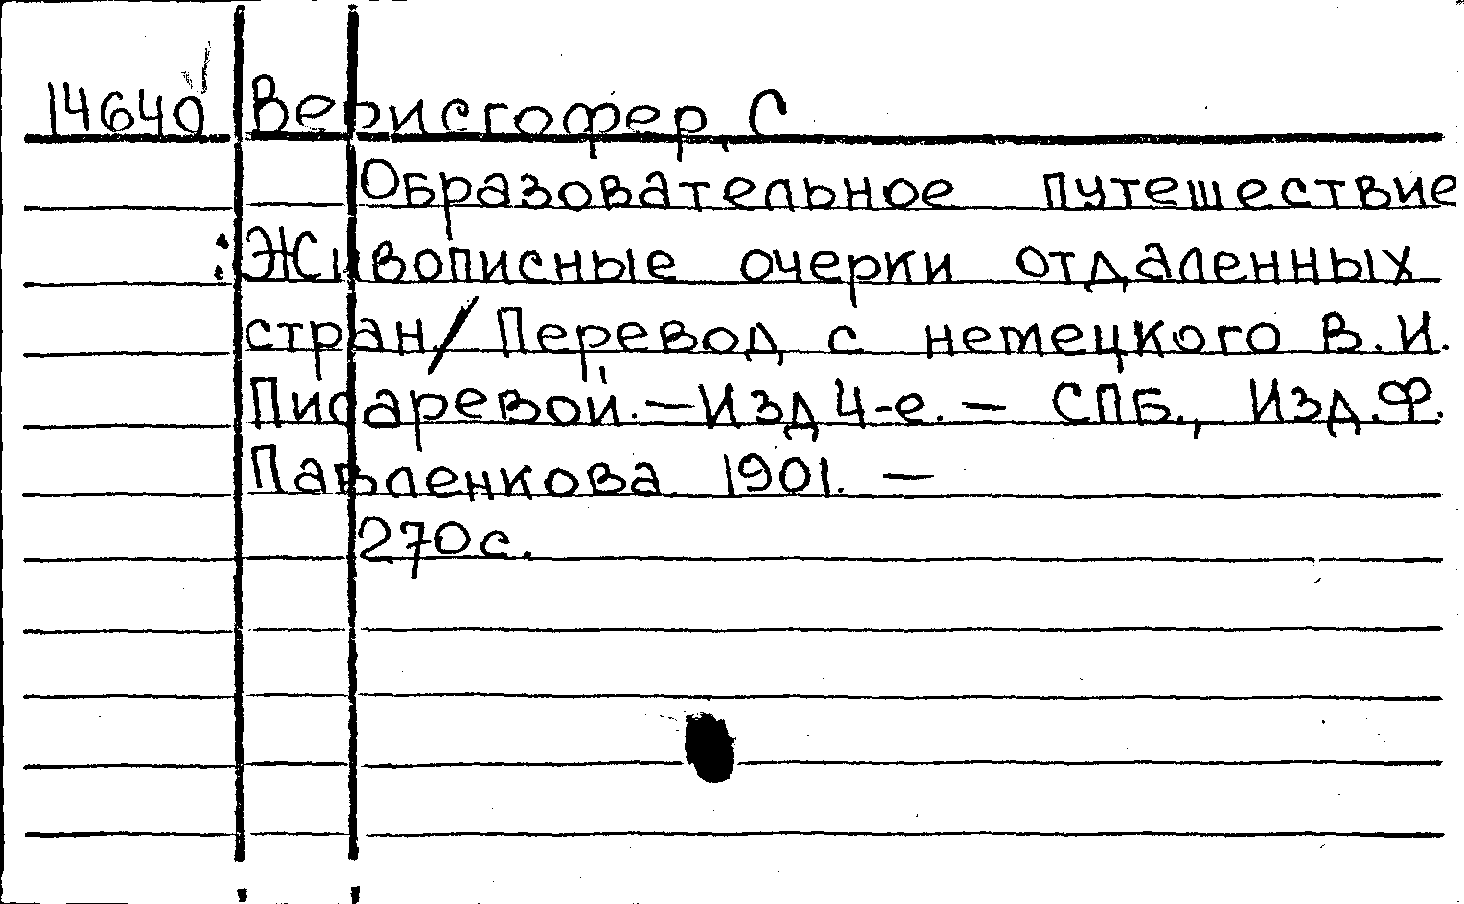 14640 Верисгофер, С
Образовательное путешествие
: Живописные очерки отдаленных
стран/ Перевод с немецкого В.И.
Писаревой. — Изд 4-е. — СПБ., Изд.Ф.
Павленкова 1901. —
270с.